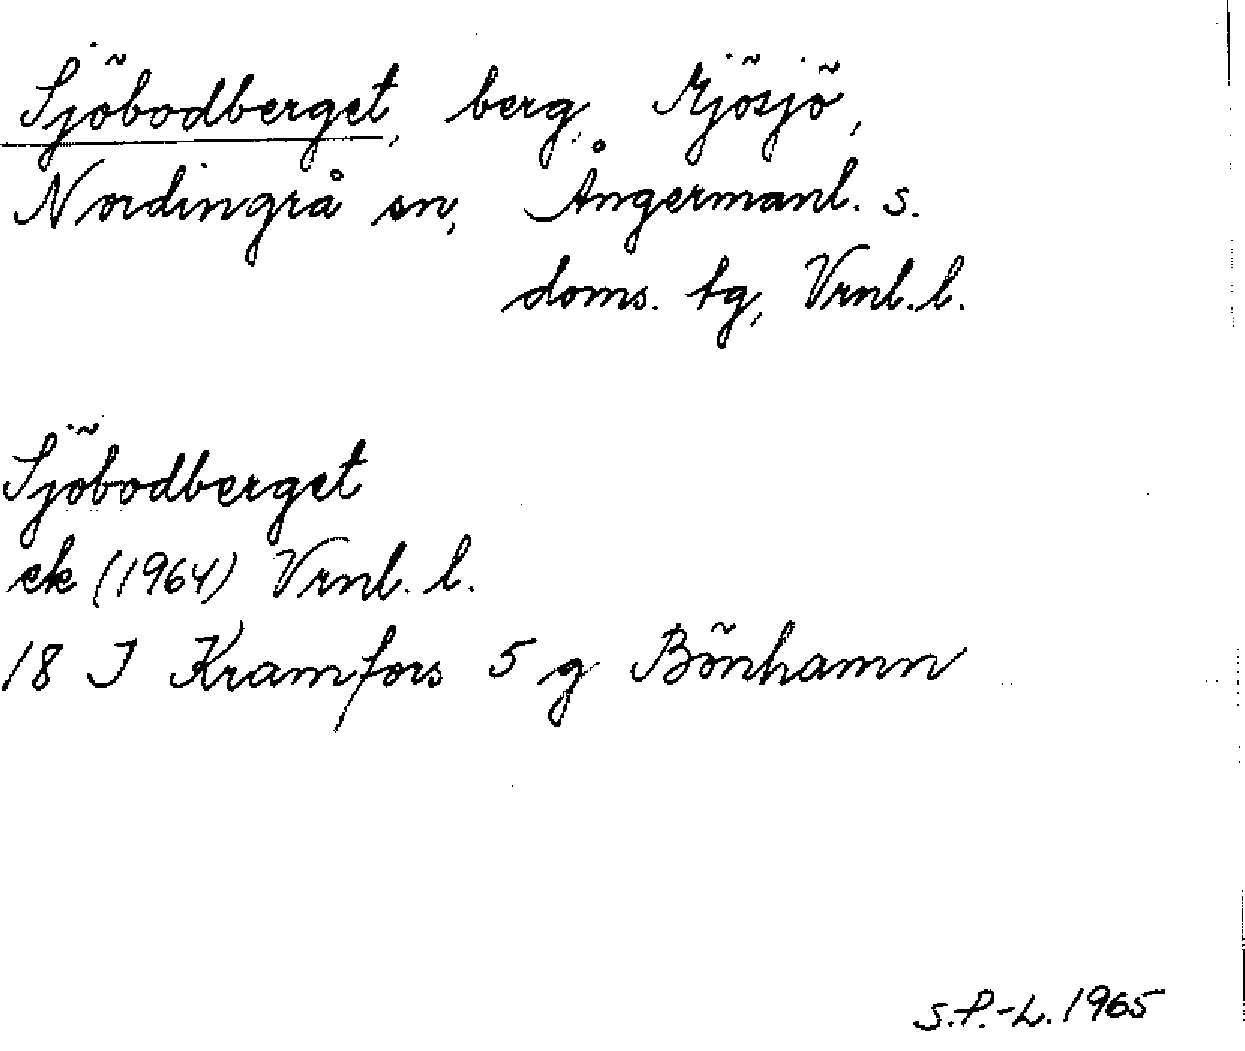 Sjöbodberget, berg, Mjösjö,
Nordingrå sn, Ångermanl. s.
doms. tg, Vrnl. l.
Sjöbodberget
ek (1964) Vrnl. l.
18 I Kramfors 5 g Bönhamn
S.P.-L. 1965